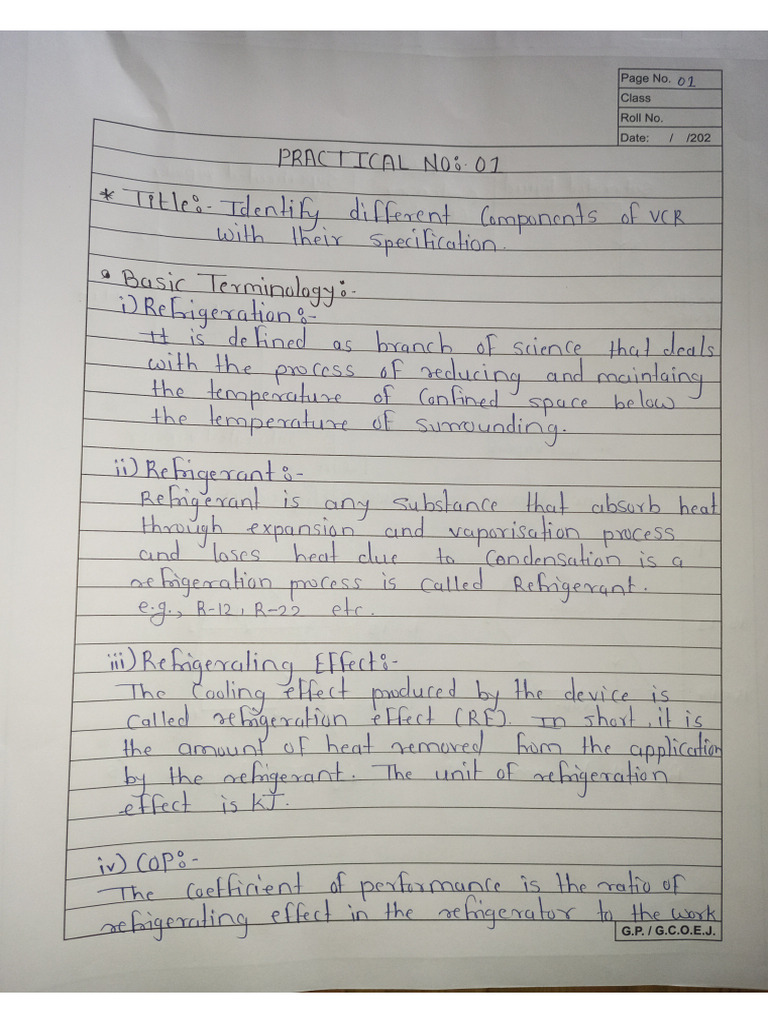 Page No. 01
Class
Roll No.
Date: / /202
PRACTICAL NO:- 01
* Title:- Identify different Components of VCR
with their specification.
• Basic Terminology:-
i) Refrigeration:-
It is defined as branch of science that deals
with the process of reducing and maintaing
the temperature of Confined space below
the temperature of surrounding.
ii) Refrigerant:-
Refrigerant is any substance that absorb heat
through expansion and vaporisation process
and loses heat due to Condensation is a
refrigeration process is called Refrigerant.
e.g., R-12, R-22 etc.
iii) Refrigerating Effect:-
The Cooling effect produced by the device is
Called refrigeration effect (RE). In short, it is
the amount of heat removed from the application
by the refrigerant. The unit of refrigeration
effect is KJ.
iv) COP:-
The Coefficient of performance is the ratio of
refrigerating effect in the refrigerator to the work
G.P. / G.C.O.E.J.